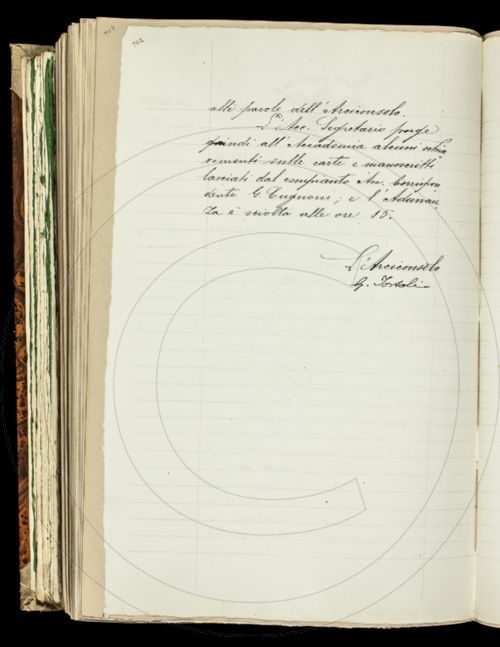 702
702
alle parole dell'Arciconsolo.
L'Acc. Segretario porge
quindi all'Accademia alcuni schia
rimenti sulle carte e manoscritti
lasciati dal compianto Acc. corrispon
dente G. Cugnoni; e l'Adunan
za è sciolta alle ore 15.
L'Arciconsolo
G. Tortoli